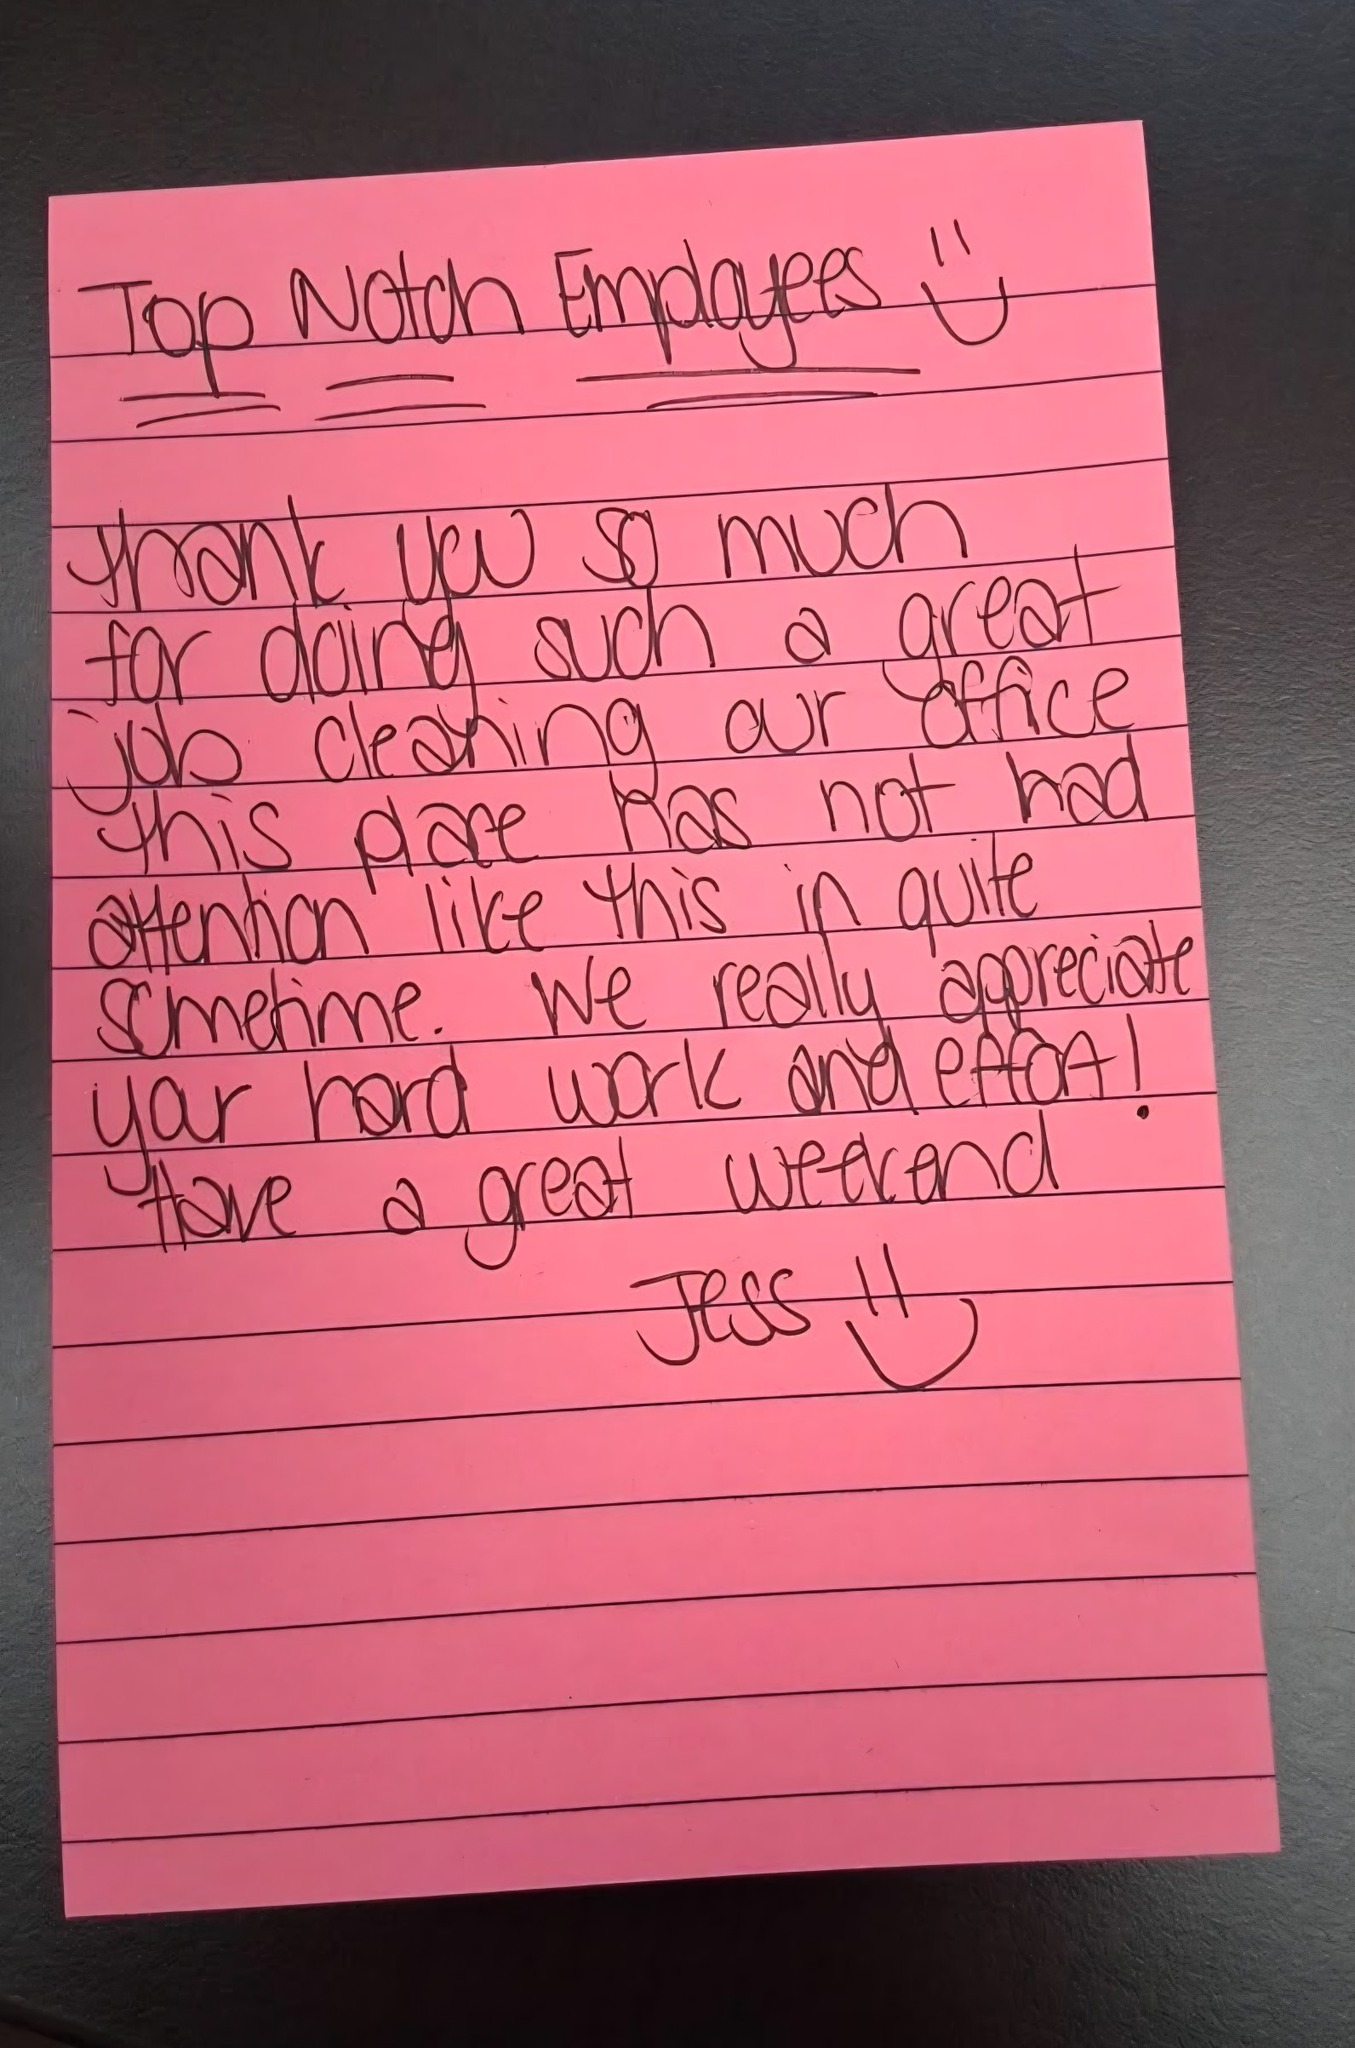 Top Notch Employees
Thank you so much
for doing such a great
job cleaning our office
this place has not had
attention like this in quite
sometime. We really appreciate
your hard work and effort!
Have a great weekend
Jess